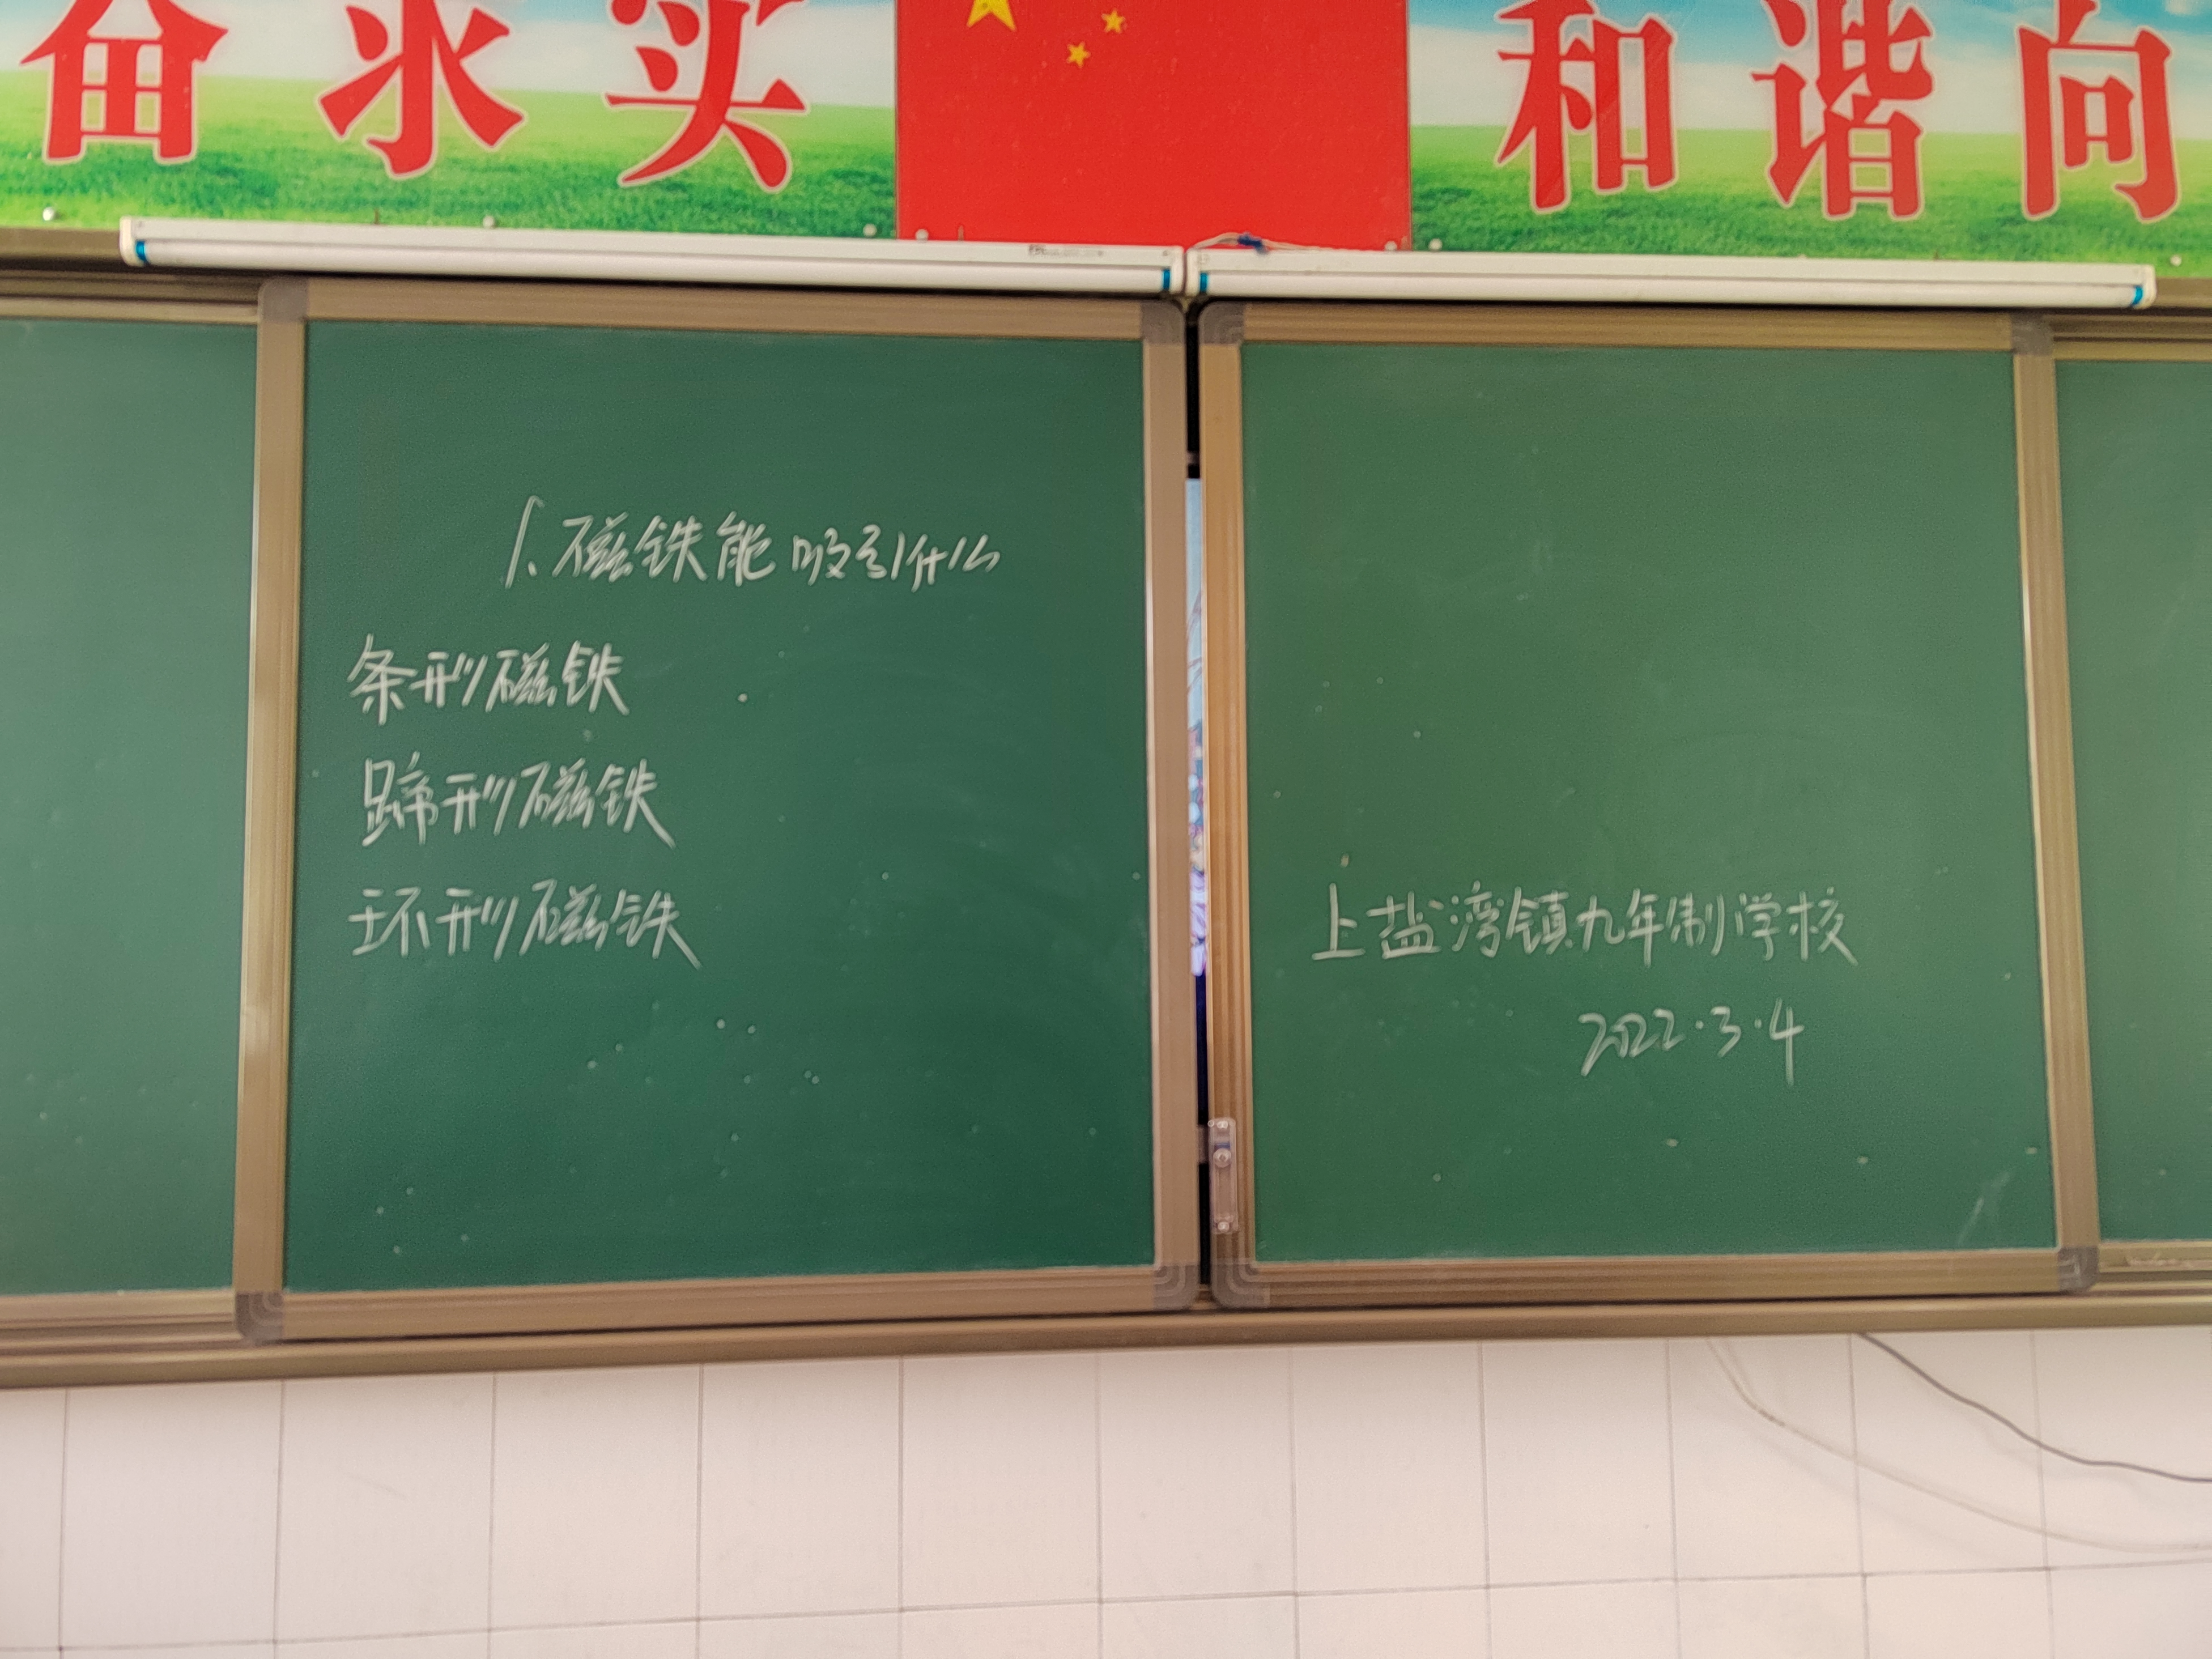 奋 求实 和谐 向
1.磁铁能吸引什么
条形磁铁
蹄形磁铁
环形磁铁
上盐湾镇九年制学校
2022·3·4